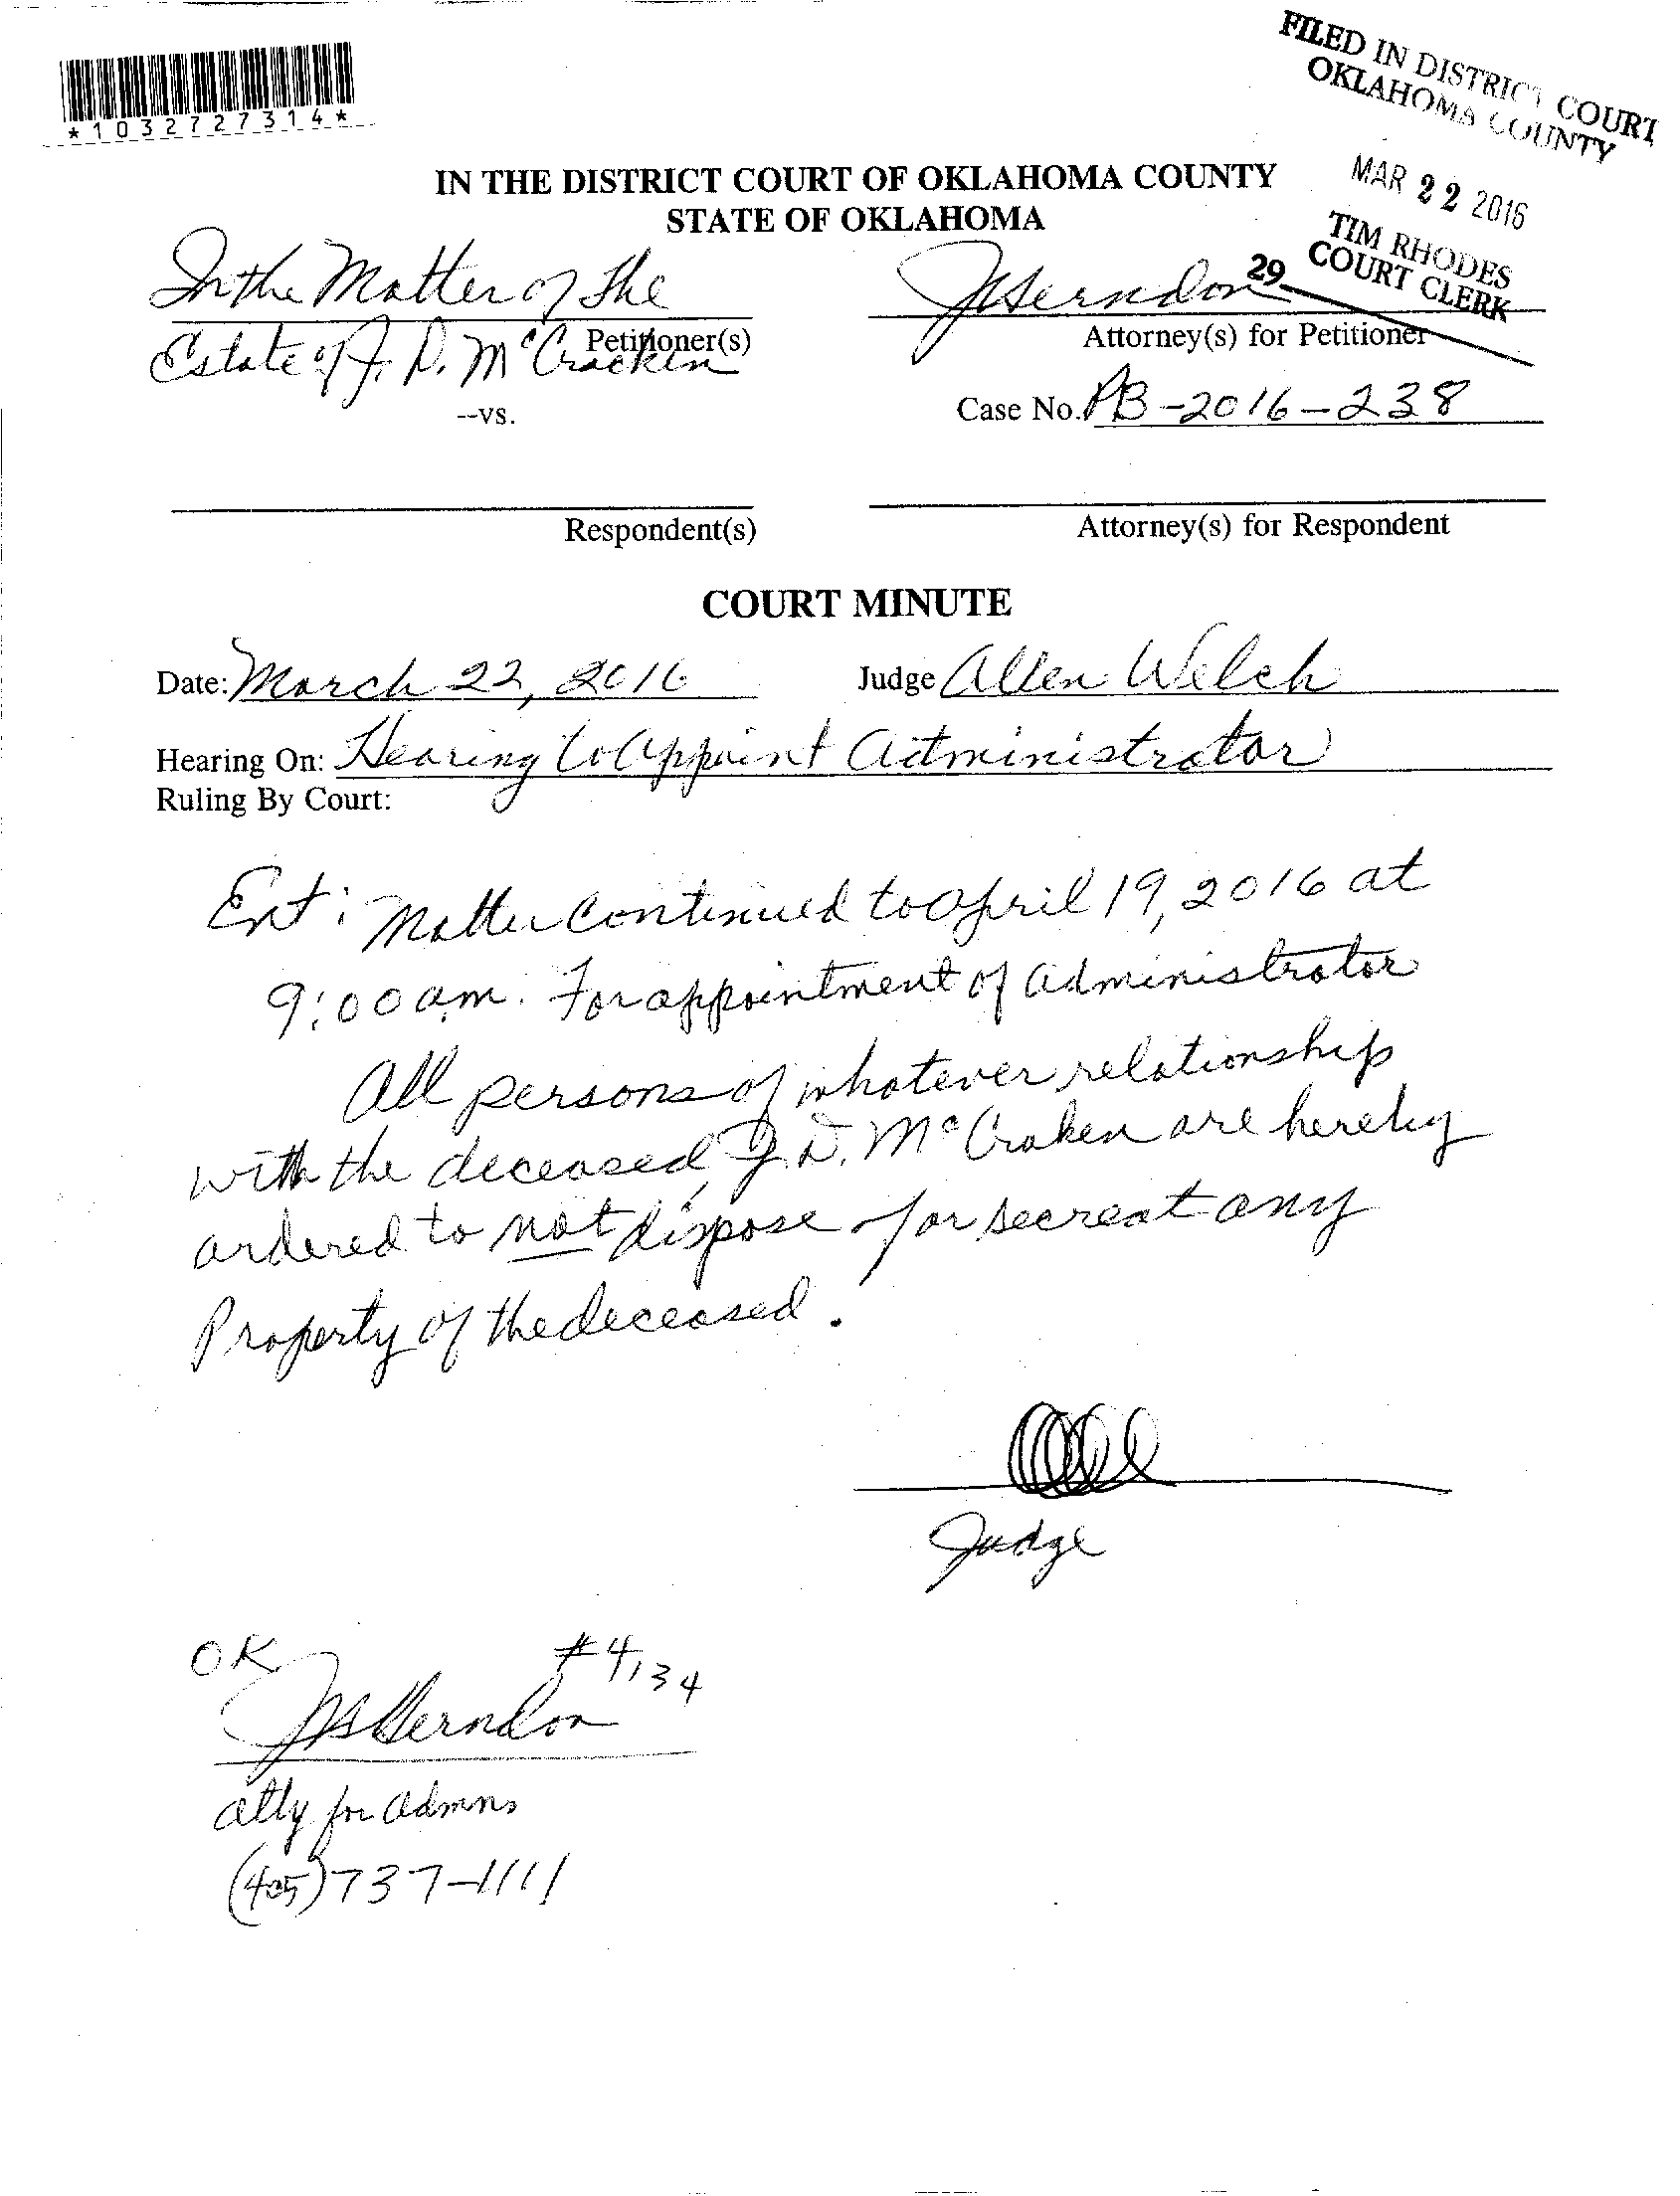 *1032727314*
FILED IN DISTRICT COURT
OKLAHOMA COUNTY
MAR 22 2016
TIM RHODES
COURT CLERK
29
IN THE DISTRICT COURT OF OKLAHOMA COUNTY
STATE OF OKLAHOMA
In the Matter of The
Estate of J. D. McCracken
Petitioner(s)
Herndon
Attorney(s) for Petitioner
--vs.
Case No. PB-2016-238
Respondent(s)
Attorney(s) for Respondent
COURT MINUTE
Date: March 22, 2016 Judge Allen Welch
Hearing On: Hearing to Appoint Administrator
Ruling By Court:
Ent: Matter Continued to April 19, 2016 at
9:00 a.m. For appointment of administrator
All persons of whatever relationship
with the deceased, J.D. McCraken are hereby
ordered to not dispose of or secreat any
Property of the deceased.
Judge
OK #4134
Herndon
atty for admns
(405)737-1111